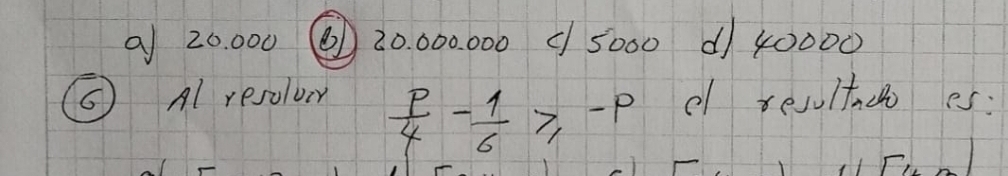 a) 20.000 (b) 20.000.000 c) 5000 d) 40000
(6) Al resolver P/4 - 1/6 ≥ -P el resultado es: